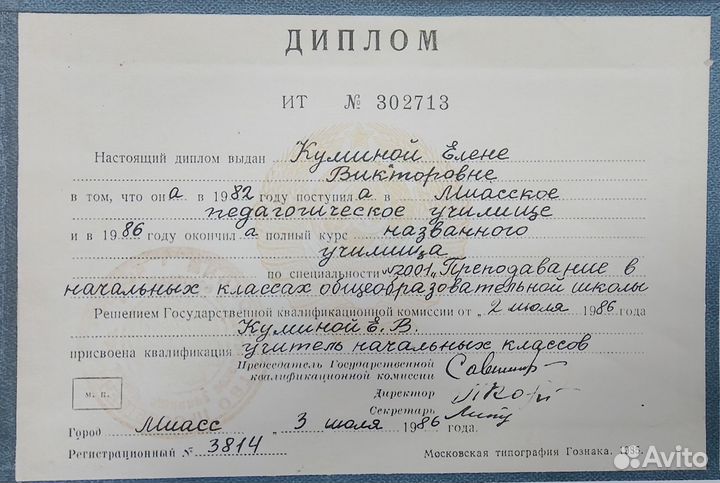 ДИПЛОМ
ИТ № 302713
Настоящий диплом выдан Куминой Елене
Викторовне
в том, что она в 1982 году поступила в Миасское
педагогическое училище
и в 1986 году окончила полный курс названного
училища
по специальности №2001 „Преподавание в
начальных классах общеобразовательной школы
Решением Государственной квалификационной комиссии от „2 июля 1986 года
Куминой Е. В.
присвоена квалификация учитель начальных классов
Председатель Государственной
квалификационной комиссии
Директор
Секретарь
м. п.
Город Миасс „3 июля 1986 года.
Регистрационный № 3814
Московская типография Гознака. 1985.
Avito